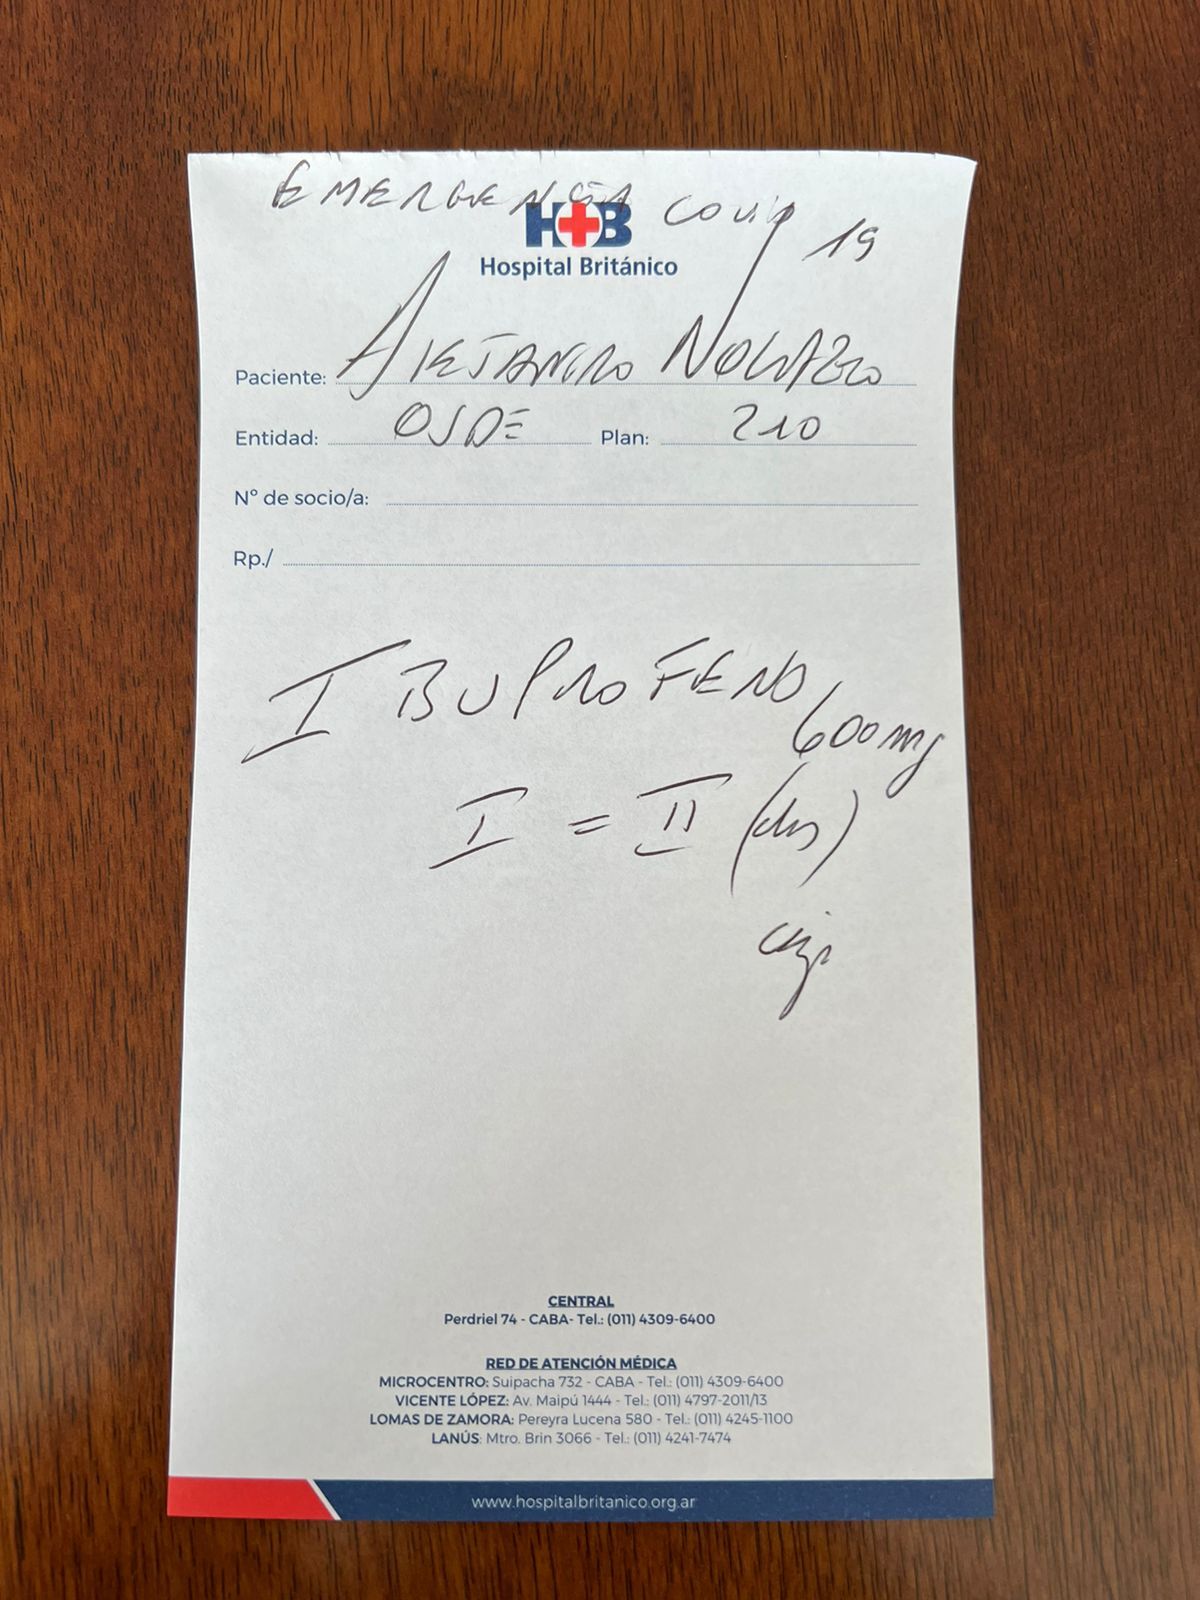 EMERGENCIA COVID 19
HB
Hospital Británico
Paciente: Alejandro
Entidad: OSDE Plan: 210
Nº de socio/a:
Rp./
IBUPROFENO 600mg
I = II (dos)
CENTRAL
Perdriel 74 - CABA- Tel.: (011) 4309-6400
RED DE ATENCIÓN MÉDICA
MICROCENTRO: Suipacha 732 - CABA - Tel.: (011) 4309-6400
VICENTE LÓPEZ: Av. Maipú 1444 - Tel.: (011) 4797-2011/13
LOMAS DE ZAMORA: Pereyra Lucena 580 - Tel.: (011) 4245-1100
LANÚS: Mtro. Brin 3066 - Tel.: (011) 4241-7474
www.hospitalbritanico.org.ar